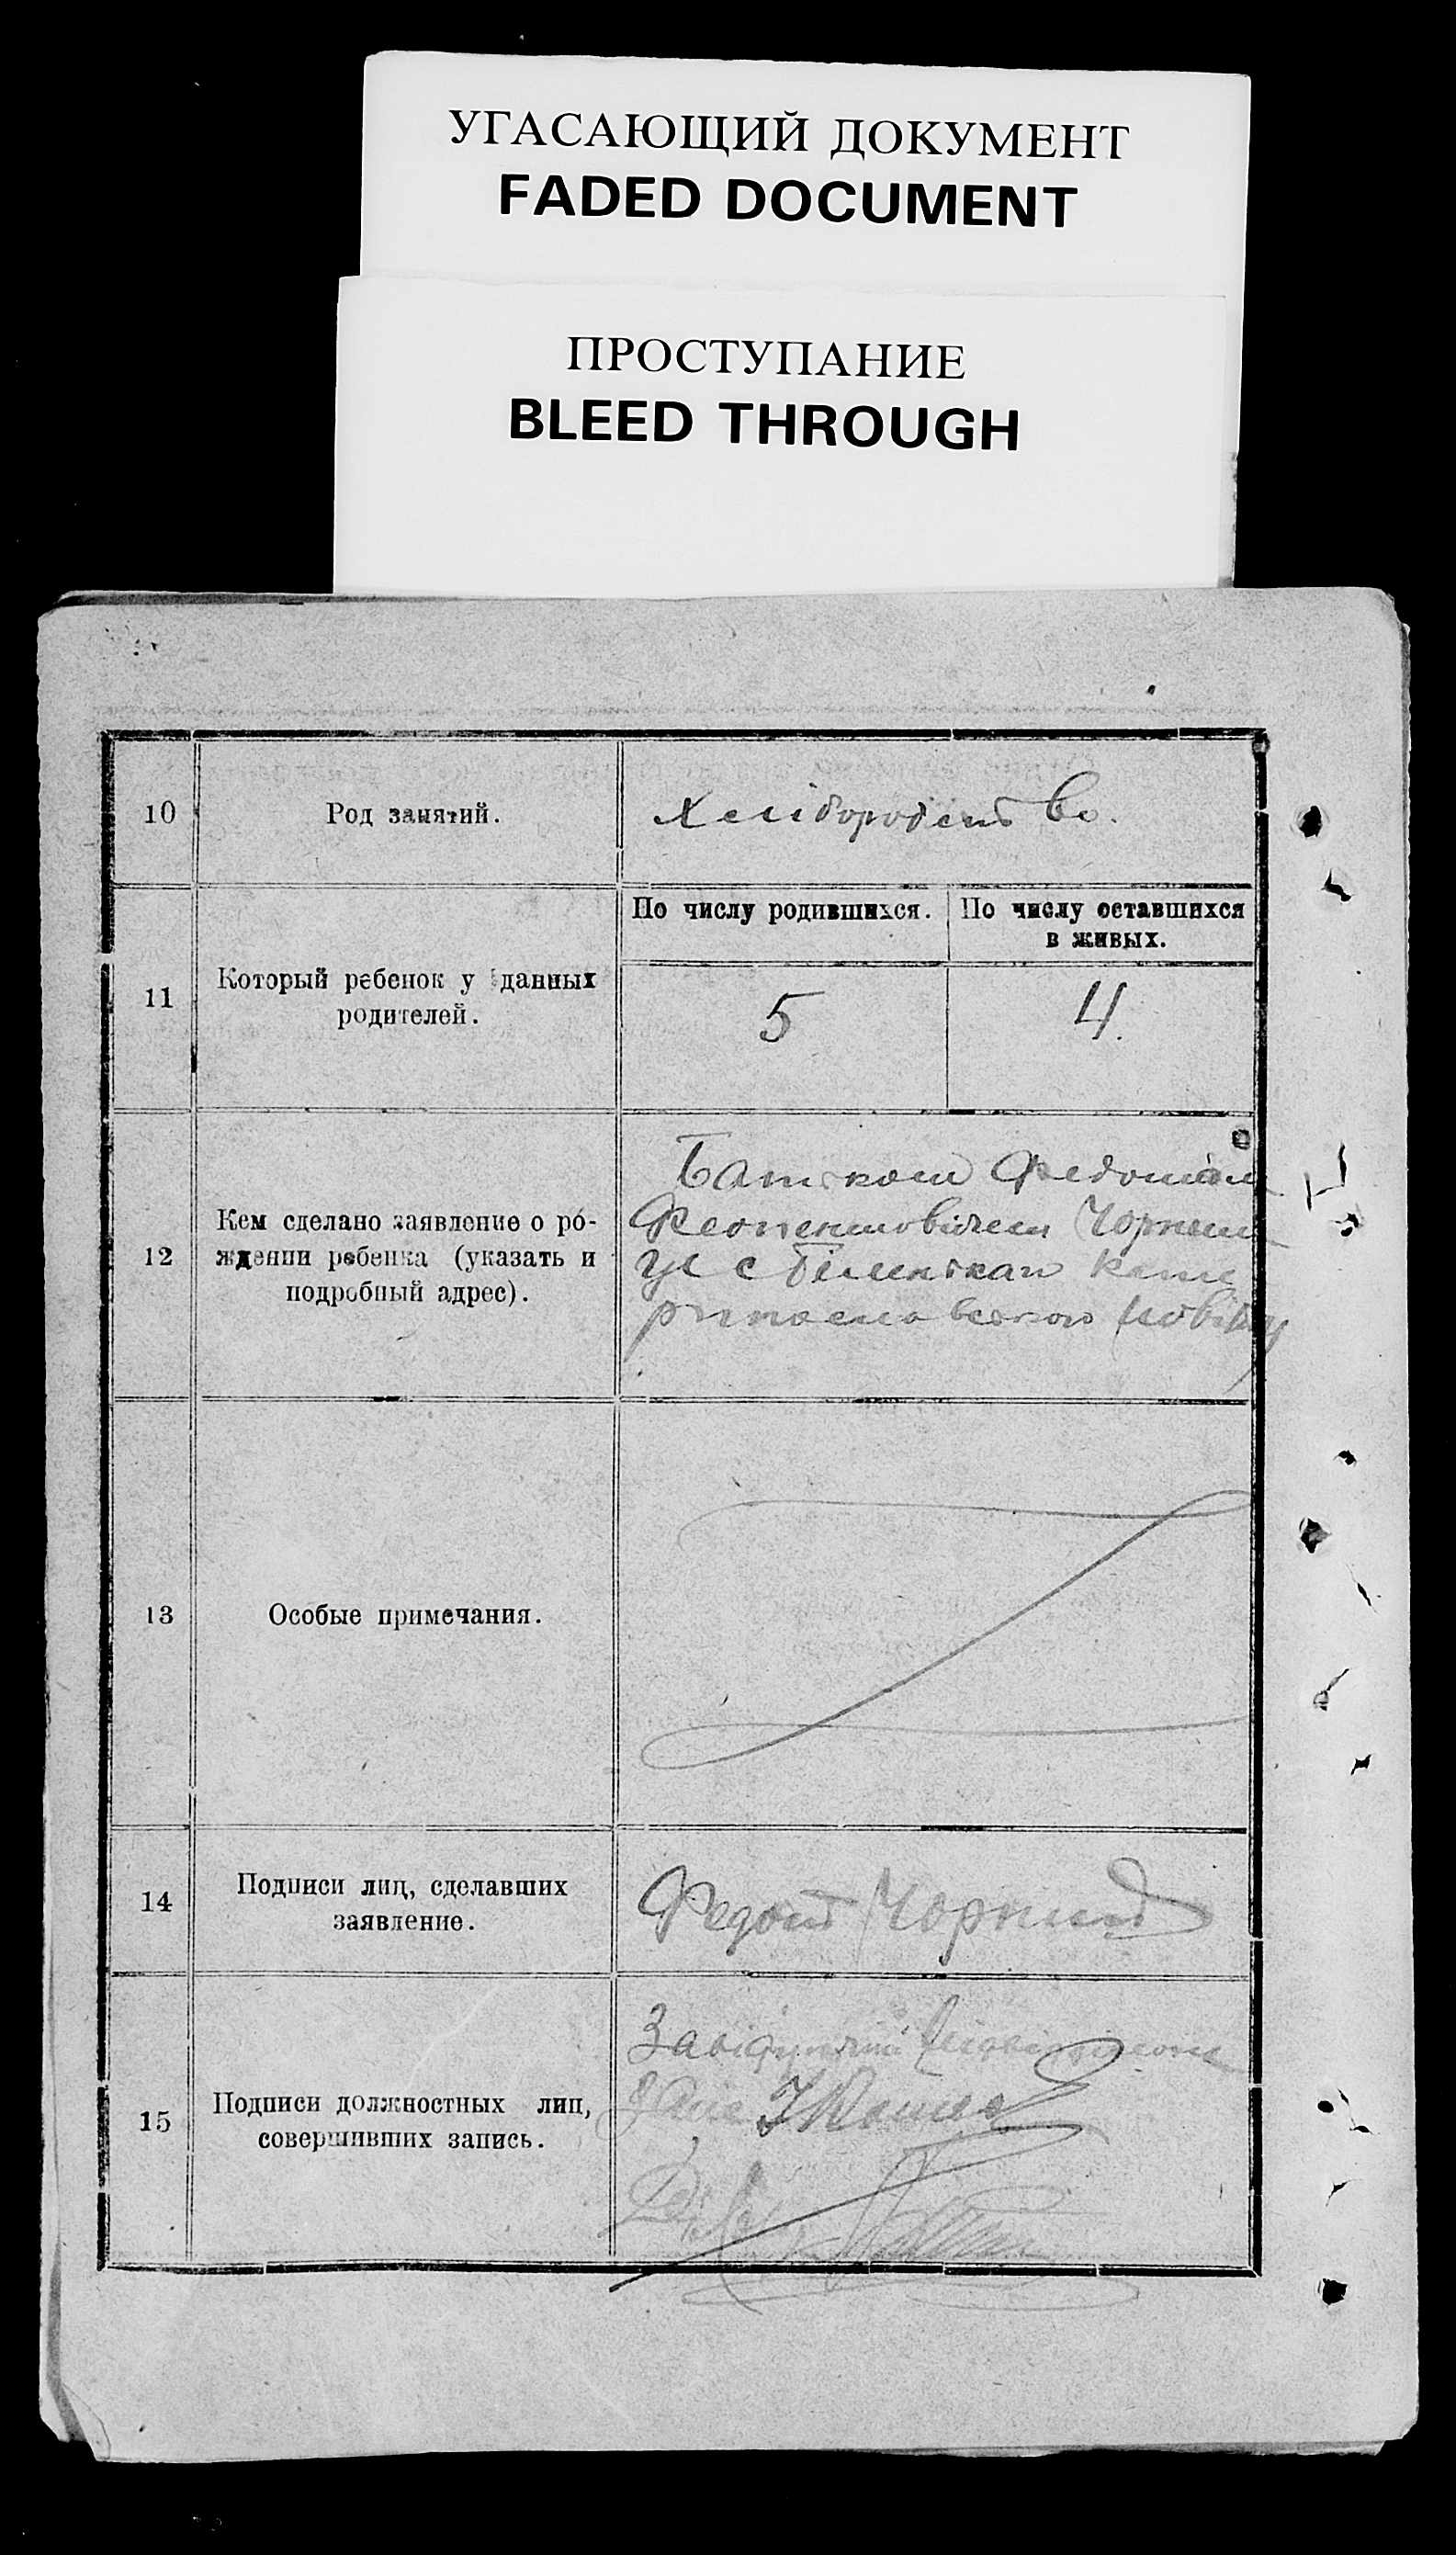 УГАСАЮЩИЙ ДОКУМЕНТ
FADED DOCUMENT
ПРОСТУПАНИЕ
BLEED THROUGH
10
Род занятий.
Хлібородство.
11
Который ребенок у данных
родителей.
По числу родившихся.
По числу оставшихся
в живых.
5
4.
12
Кем сделано заявление о ро-
ждении ребенка (указать и
подробный адрес).
Батьком Федотом
Чорним
с Біленькаго Кате
ринославского повіту
13
Особые примечания.
14
Подписи лиц, сделавших
заявление.
Федот Чорний
15
Подписи должностных лиц,
совершивших запись.
Завідуючий